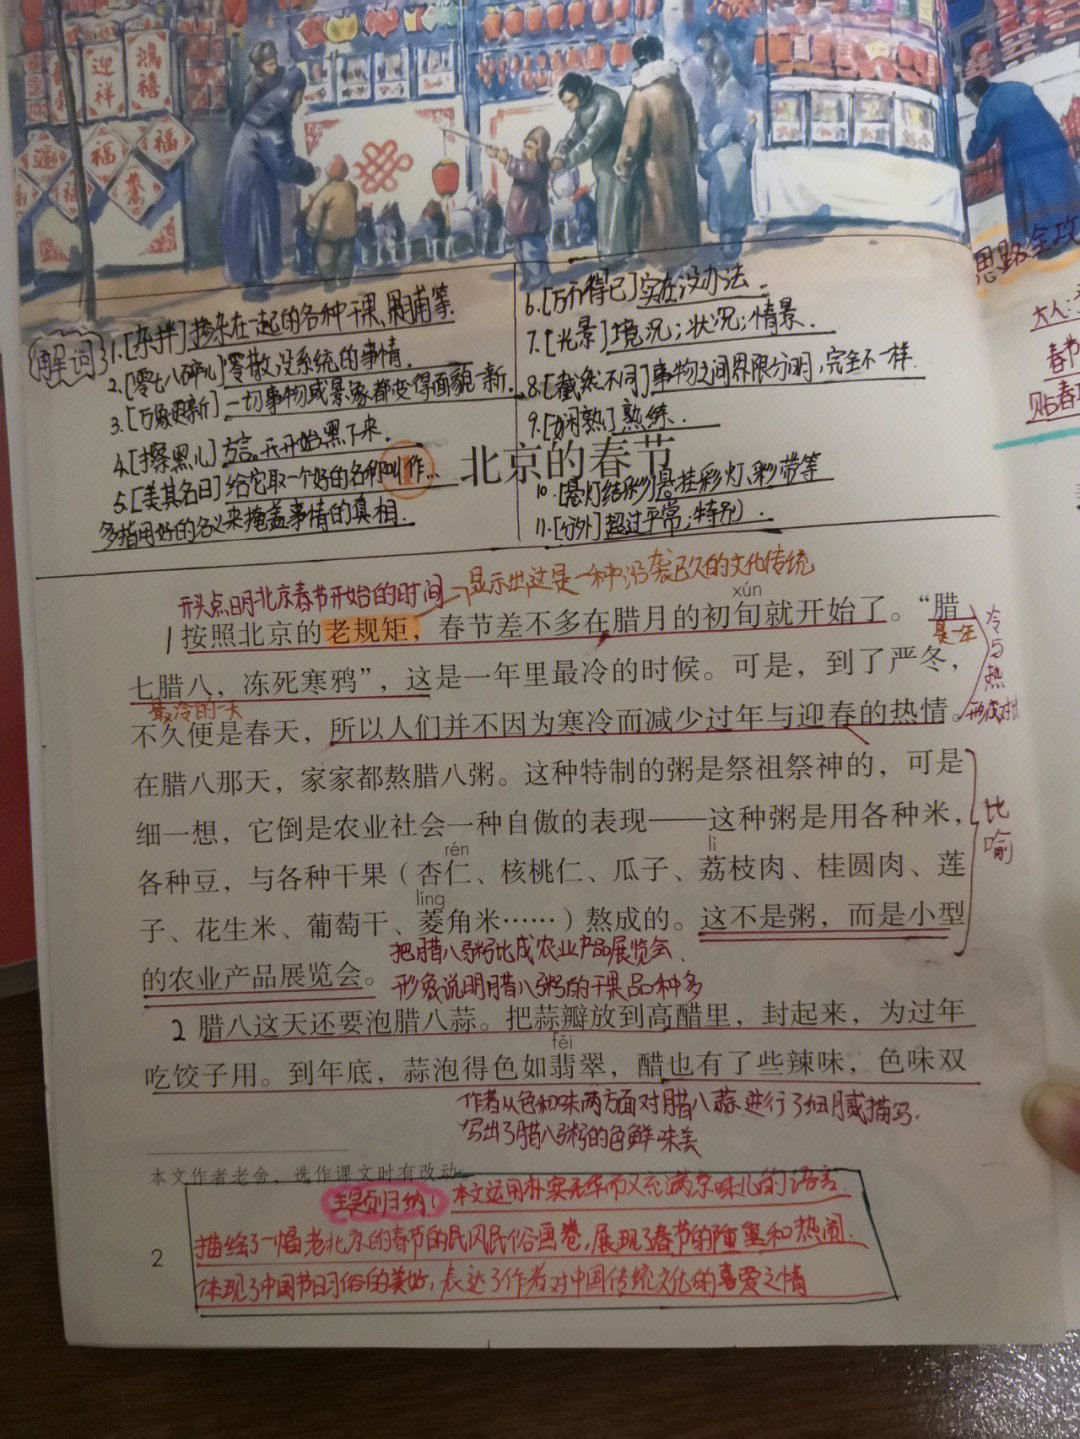 迎祥
鴻禧
福
福
福
思路全攻
解词
1.[杂拌]掺杂在一起的各种干果、果脯等.
2.[零七八碎儿]零散没系统的事情.
3.[万象更新]一切事物或景象都变得面貌一新.
4.[擦黑儿]方言。天开始黑下来.
5.[美其名曰]给它取一个好的名称叫作..
多指用好的名义来掩盖事情的真相.
6.[万不得已]实在没办法.
7.[光景]境况;状况;情景.
8.[截然不同]事物之间界限分明,完全不一样.
9.[娴熟]熟练.
10.[悬灯结彩]悬挂彩灯、彩带等
11.[分外]超过平常;特别.
大人:
春节
贴春
北京的春节
开头点明北京春节开始的时间
显示出这是一种沿袭已久的文化传统
xún
1按照北京的老规矩，春节差不多在腊月的初旬就开始了。“腊
是一年
最冷的一天
七腊八，冻死寒鸦”，这是一年里最冷的时候。可是，到了严冬，
不久便是春天，所以人们并不因为寒冷而减少过年与迎春的热情。
冷与热
形成对比
在腊八那天，家家都熬腊八粥。这种特制的粥是祭祖祭神的，可是
细一想，它倒是农业社会一种自傲的表现——这种粥是用各种米，
比喻
rén lì
各种豆，与各种干果（杏仁、核桃仁、瓜子、荔枝肉、桂圆肉、莲
líng
子、花生米、葡萄干、菱角米……）熬成的。这不是粥，而是小型
的农业产品展览会。
把腊八粥比成农业产品展览会、
形象说明腊八粥的干果品种多
2 腊八这天还要泡腊八蒜。把蒜瓣放到高醋里，封起来，为过年
fěi
吃饺子用。到年底，蒜泡得色如翡翠，醋也有了些辣味，色味双
作者从色和味两方面对腊八蒜进行了细腻描写.
写出了腊八粥的色鲜味美
本文作者老舍，选作课文时有改动
主题归纳:本文运用朴实无华而又充满京味儿的语言
描绘了一幅老北京的春节的民风民俗画卷,展现了春节的隆重和热闹.
体现了中国节日习俗的美好,表达了作者对中国传统文化的喜爱之情
2